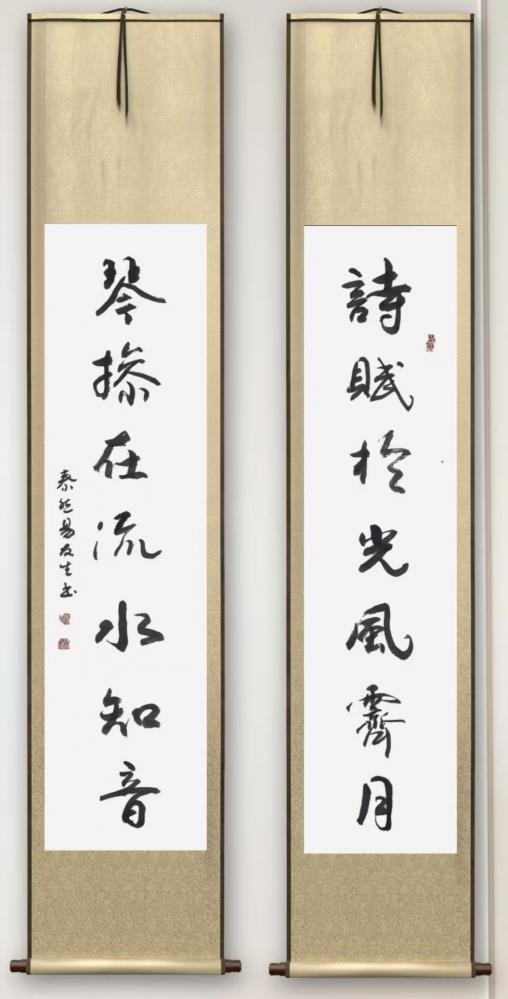 詩賦於光風霽月
琴操在流水知音
泰然易友生書